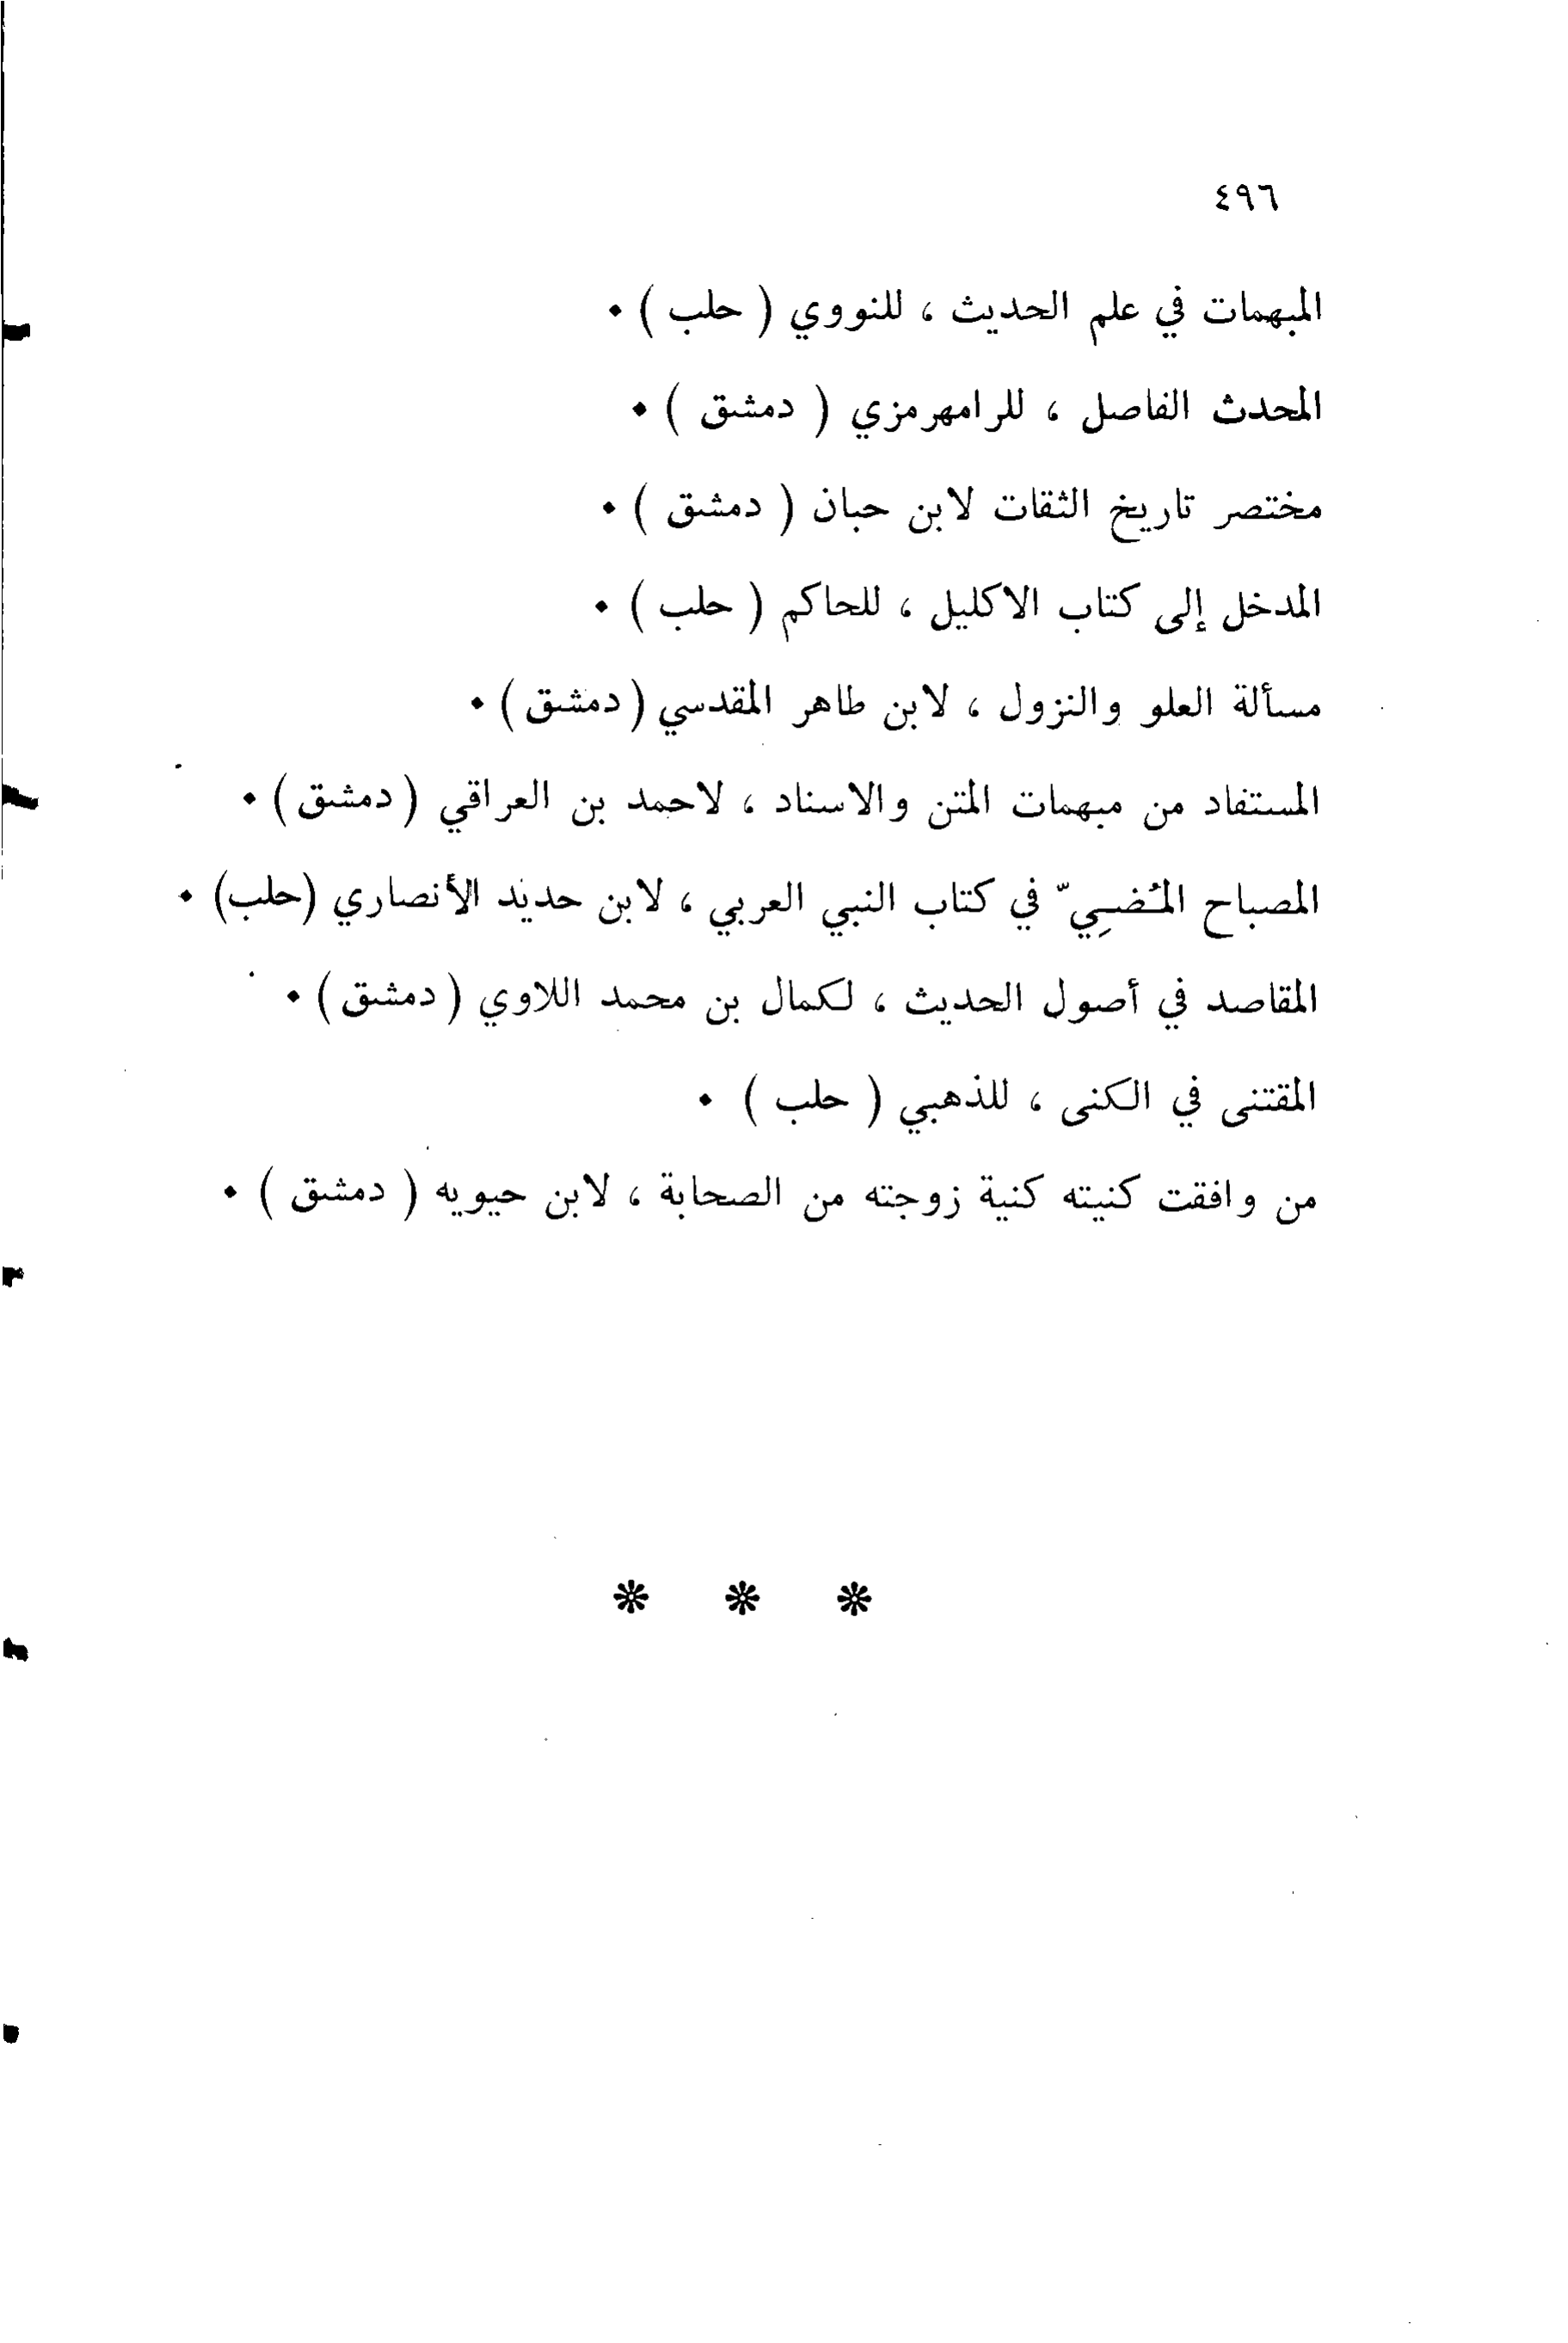 ٤٩٦
المبهمات في علم الحديث ، للنووي ( حلب ) .
المحدث الفاصل ، للرامهرمزي ( دمشق ) .
مختصر تاريخ الثقات لابن حبان ( دمشق ) .
المدخل إلى كتاب الاكليل ، للحاكم ( حلب ) .
مسألة العلو والنزول ، لابن طاهر المقدسي ( دمشق ) .
المستفاد من مبهمات المتن والاسناد ، لاحمد بن العراقي ( دمشق ) .
المصباح المُضِيّ في كتاب النبي العربي ، لابن حديد الأنصاري (حلب) .
المقاصد في أصول الحديث ، لكمال بن محمد اللاوي ( دمشق ) .
المقتنى في الكنى ، للذهبي ( حلب ) .
من وافقت كنيته كنية زوجته من الصحابة ، لابن حيويه ( دمشق ) .
* * *